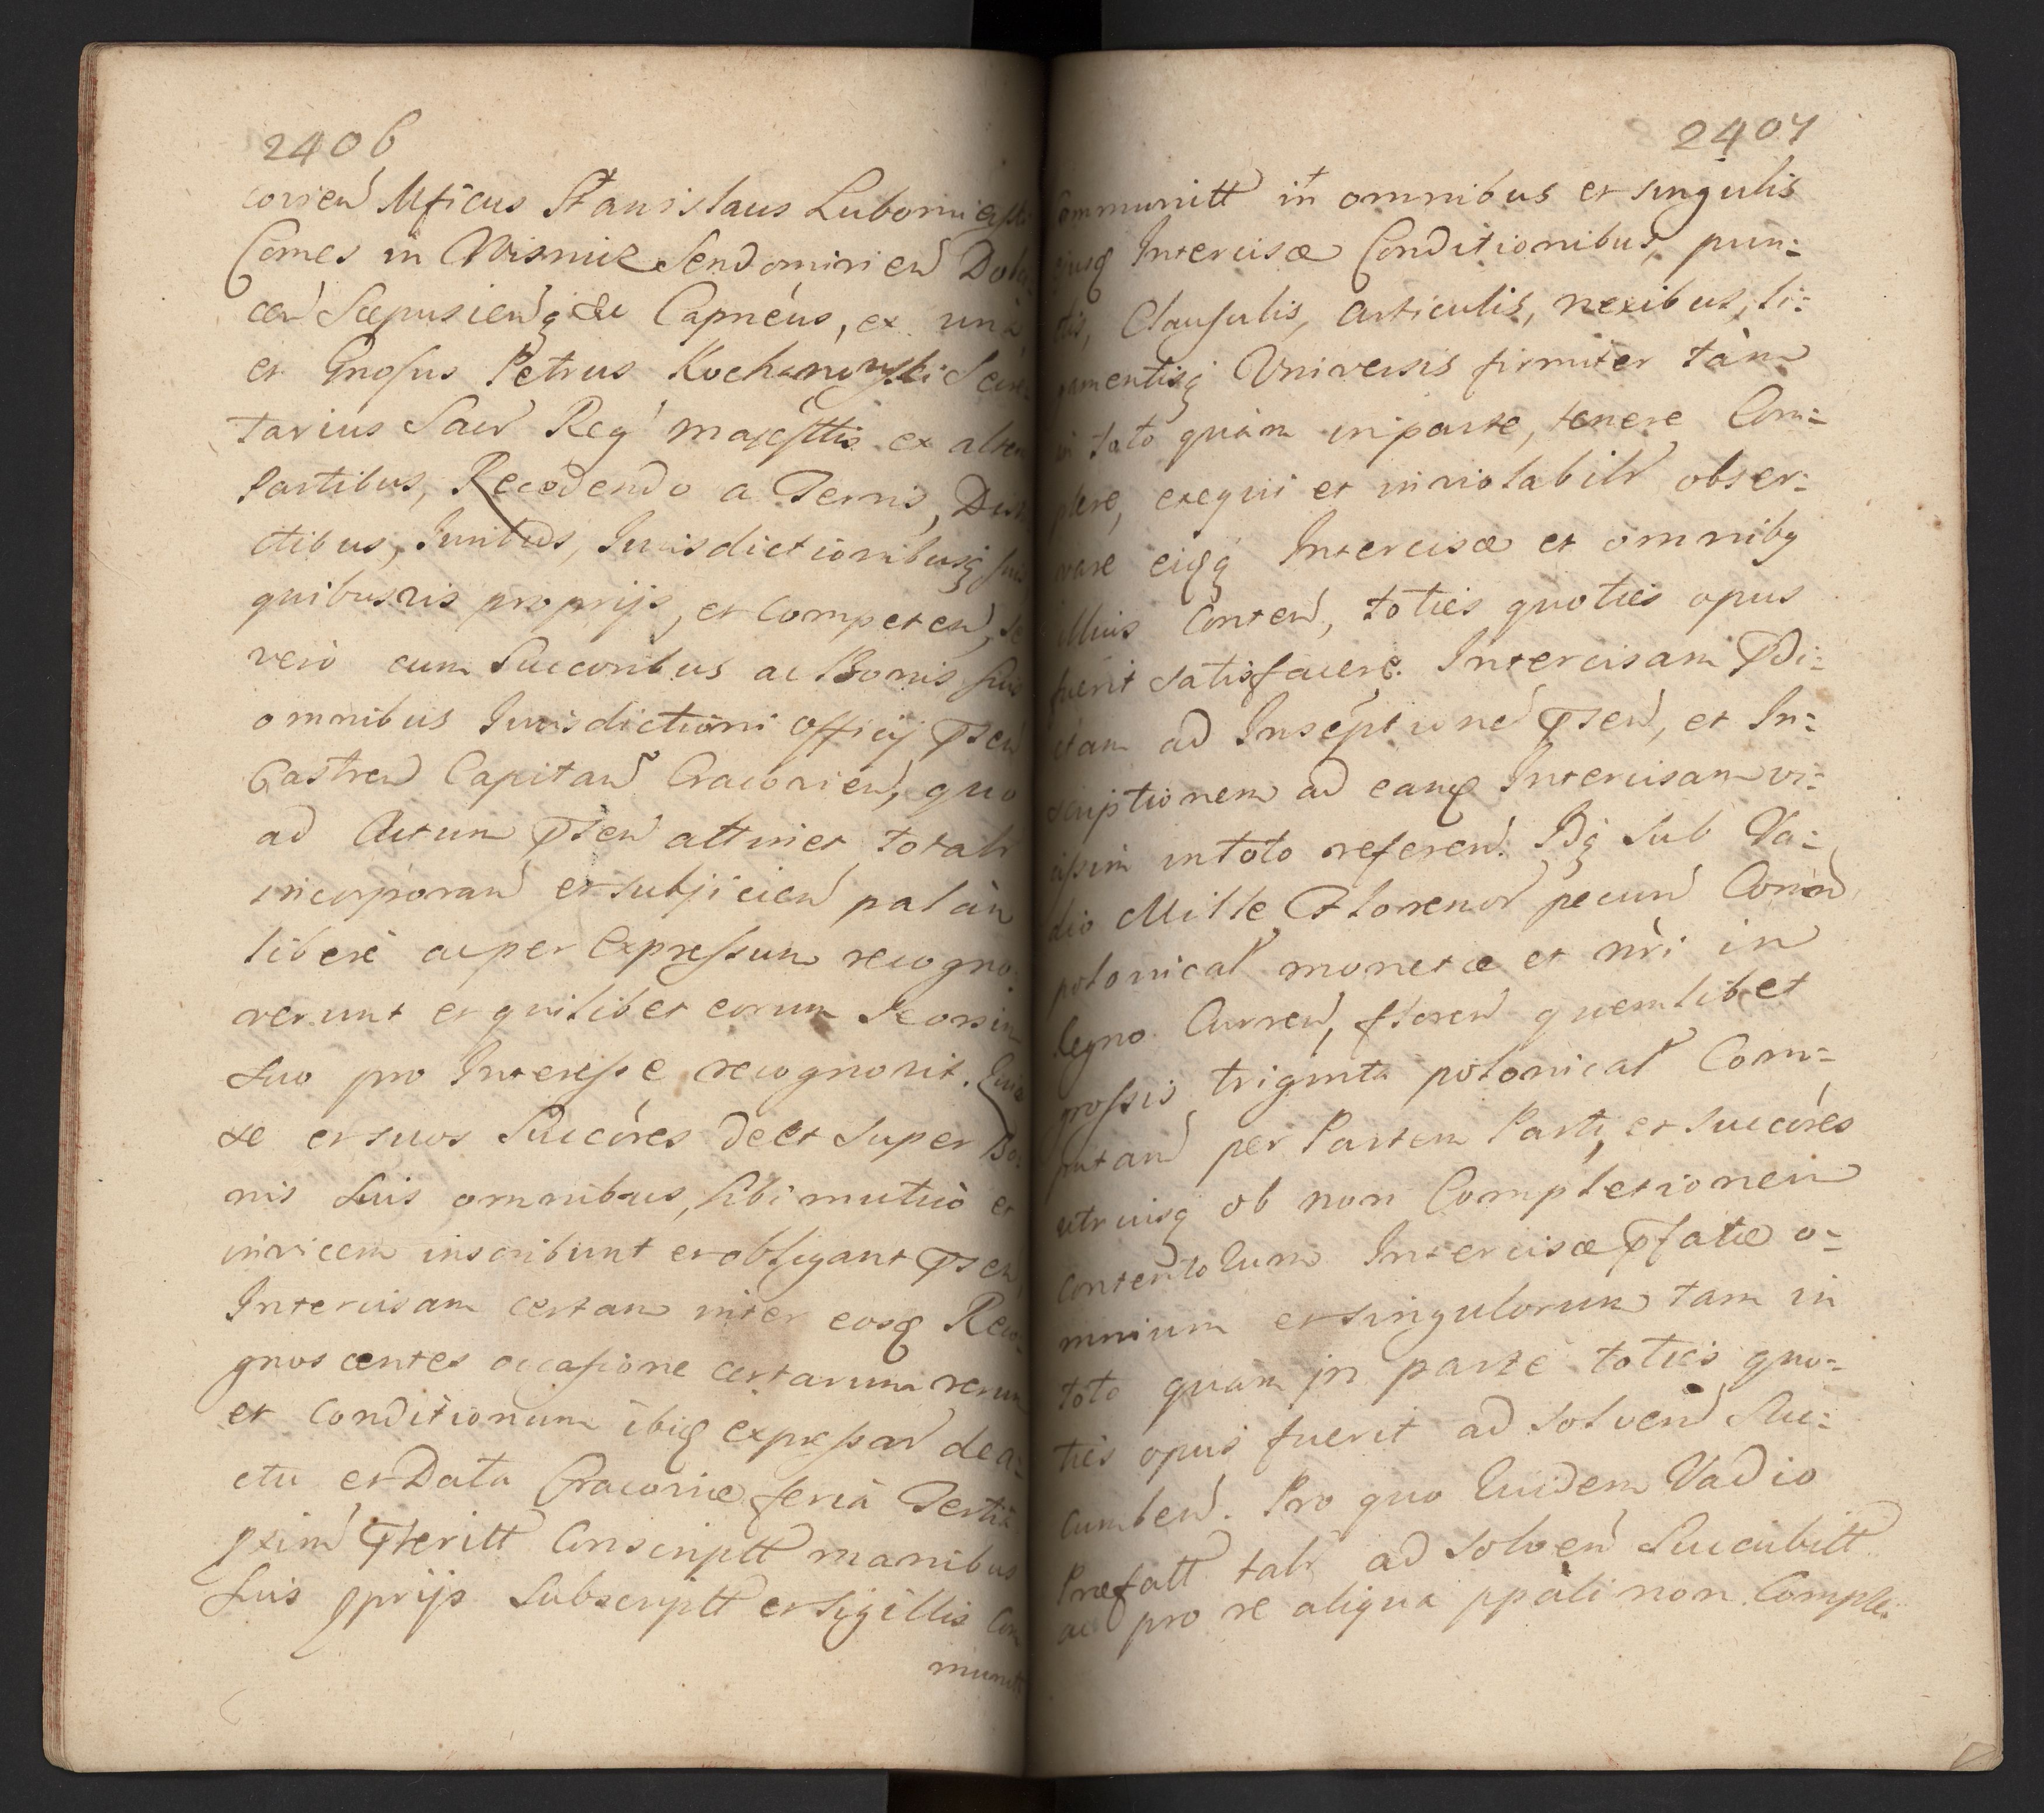 2406
covień Mficus Stanislaus Lubomierski
Comes in Wisnicz Sendomirień Dob
cen Scepusieńq &c Capnéus, ex unà
et Gnosus Petrus Kochanowski Secre
tarius Sacr Reg majesttis ex altera
Partibus, Recedendo a Terris, Distri
ctibus, Juribus, Jurisdictionibusq suis
quibusvis proprijs, et competen, se
verò cum Succoribus ac Bonis suis
omnibus Jurisdictioni officij Pnsen
Castren Capitan Cracovien, quo
ad Actum Pnsen attinet, totalr
incorporan et subjicien palàm
liberè ac per Expressum recogno:
verunt et quilibet eorum Seorsim
suo pro Interesse recognovit. Quia
se et suos Succóres de et super Bo:
nis suis omnibus, sibi mutuò et
invicem inscribunt et obligant Pnsen
Intercisam certam inter eosq Reco:
gnoscentes occasione certarum rerum
et conditionum ibiq expressar de a:
ctu et Data Cracoviæ feriâ Tertiâ
pxim Pnteritt Conscriptt manibus
suis pprijs Subscriptt et sigillis Com
munitt
2407
Communitt in omnibus et singulis
ejusq Intercisæ Conditionibus, pun:
ctis, Clausulis, articulis, nexibus, li:
gamentisq Universis firmiter tàm
in toto quàm in parte, tenere Com:
plere, exequi et inviolabilr obser:
vare eisq Intercisæ et omnibq
illius Conten, toties quoties opus
fuerit satisfacere. Intercisam Pdi:
ctam ad Inscriptione Pnsen, et In:
scriptionem ad eamq Intercisam vi:
cissim in toto referen. Idq sub Va:
dio Mille Florenor pecun Comm
polonical monetæ et nri in
Regno Curren, floren quemlibet
grossis triginta polonical Com:
putan per Partem Parti, et succóres
utriusq ob non Completionem
contentorum Intercisæ pfatæ o:
mnium et singulorum tam in
toto quam in parte toties quo:
ties opus fuerit ad solven Suc:
cumben. Pro quo quidem Vadio
Præfatt talr ad solven Succubitt
ac pro re aliqua ppali non Comple